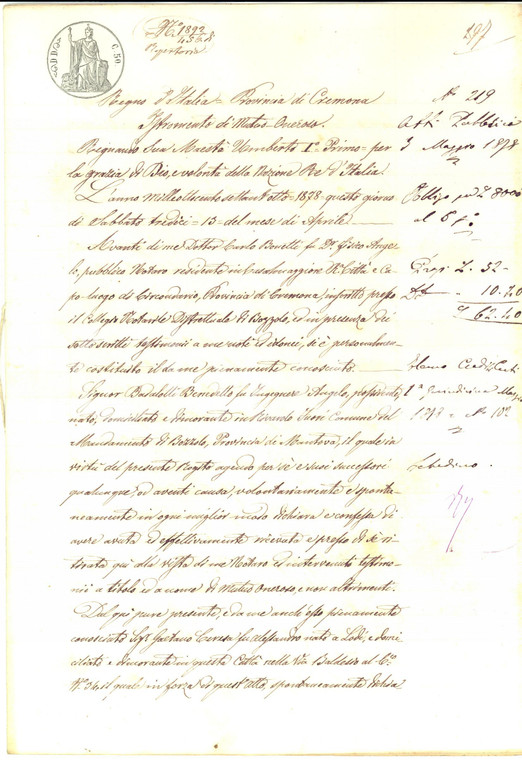 N° 1892
Repertorio
197
C. 50
Regno d'Italia = Provincia di Cremona
N° 219
Istrumento di Mutuo Oneroso.
Atti Pubblici
Regnando Sua Maestà Umberto I° Primo = per
3 Maggio 1878
la grazia di Dio, e volontà della Nazione Re d'Italia.
L'anno Milleottocento settantotto = 1878 = questo giorno
8000
di Sabbato tredici = 13 = del mese di Aprile.
al 6
Avanti di me Dottor Carlo Bonetti fu Dr. Fisico Ange-
lo, pubblico Notaro residente in Casalmaggiore R. Città e Ca-
52 -
po luogo di Circondario, Provincia di Cremona, inscritto presso
10.40
il Collegio Notarile Distrettuale di Bozzolo, ed in presenza dei
62.40
sotto scritti testimonii a me noti ed idonei, si è personalmen-
te costituito il da me pienamente conosciuto.
Signor Badalotti Benedetto fu Ingegnere Angelo, possidente,
nato, domiciliato e dimorante in Rivarolo Fuori Comune del
1878 N° 10
Mandamento di Bozzolo, Provincia di Mantova, il quale in
virtù del presente Rogito agendo per sé e suoi successori
qualunque, ed aventi causa, volontariamente e sponta-
neamente in ogni miglior modo dichiara e confessa di
avere avuta ed effettivamente ricevuta e presso di sé ri-
tirata qui alla vista di me Notaro ed intervenuti testimo-
nii a titolo ed a nome di Mutuo Oneroso, e non altrimenti.
Dal qui pure presente, e da me anch'esso pienamente
conosciuto Sig. Gaetano Ceresa fu Alessandro nato a Lodi, e domi-
ciliato e dimorante in questa Città nella Via Baldesio al C.°
N° 34, il quale in forza di quest'atto, spontaneamente dichia-